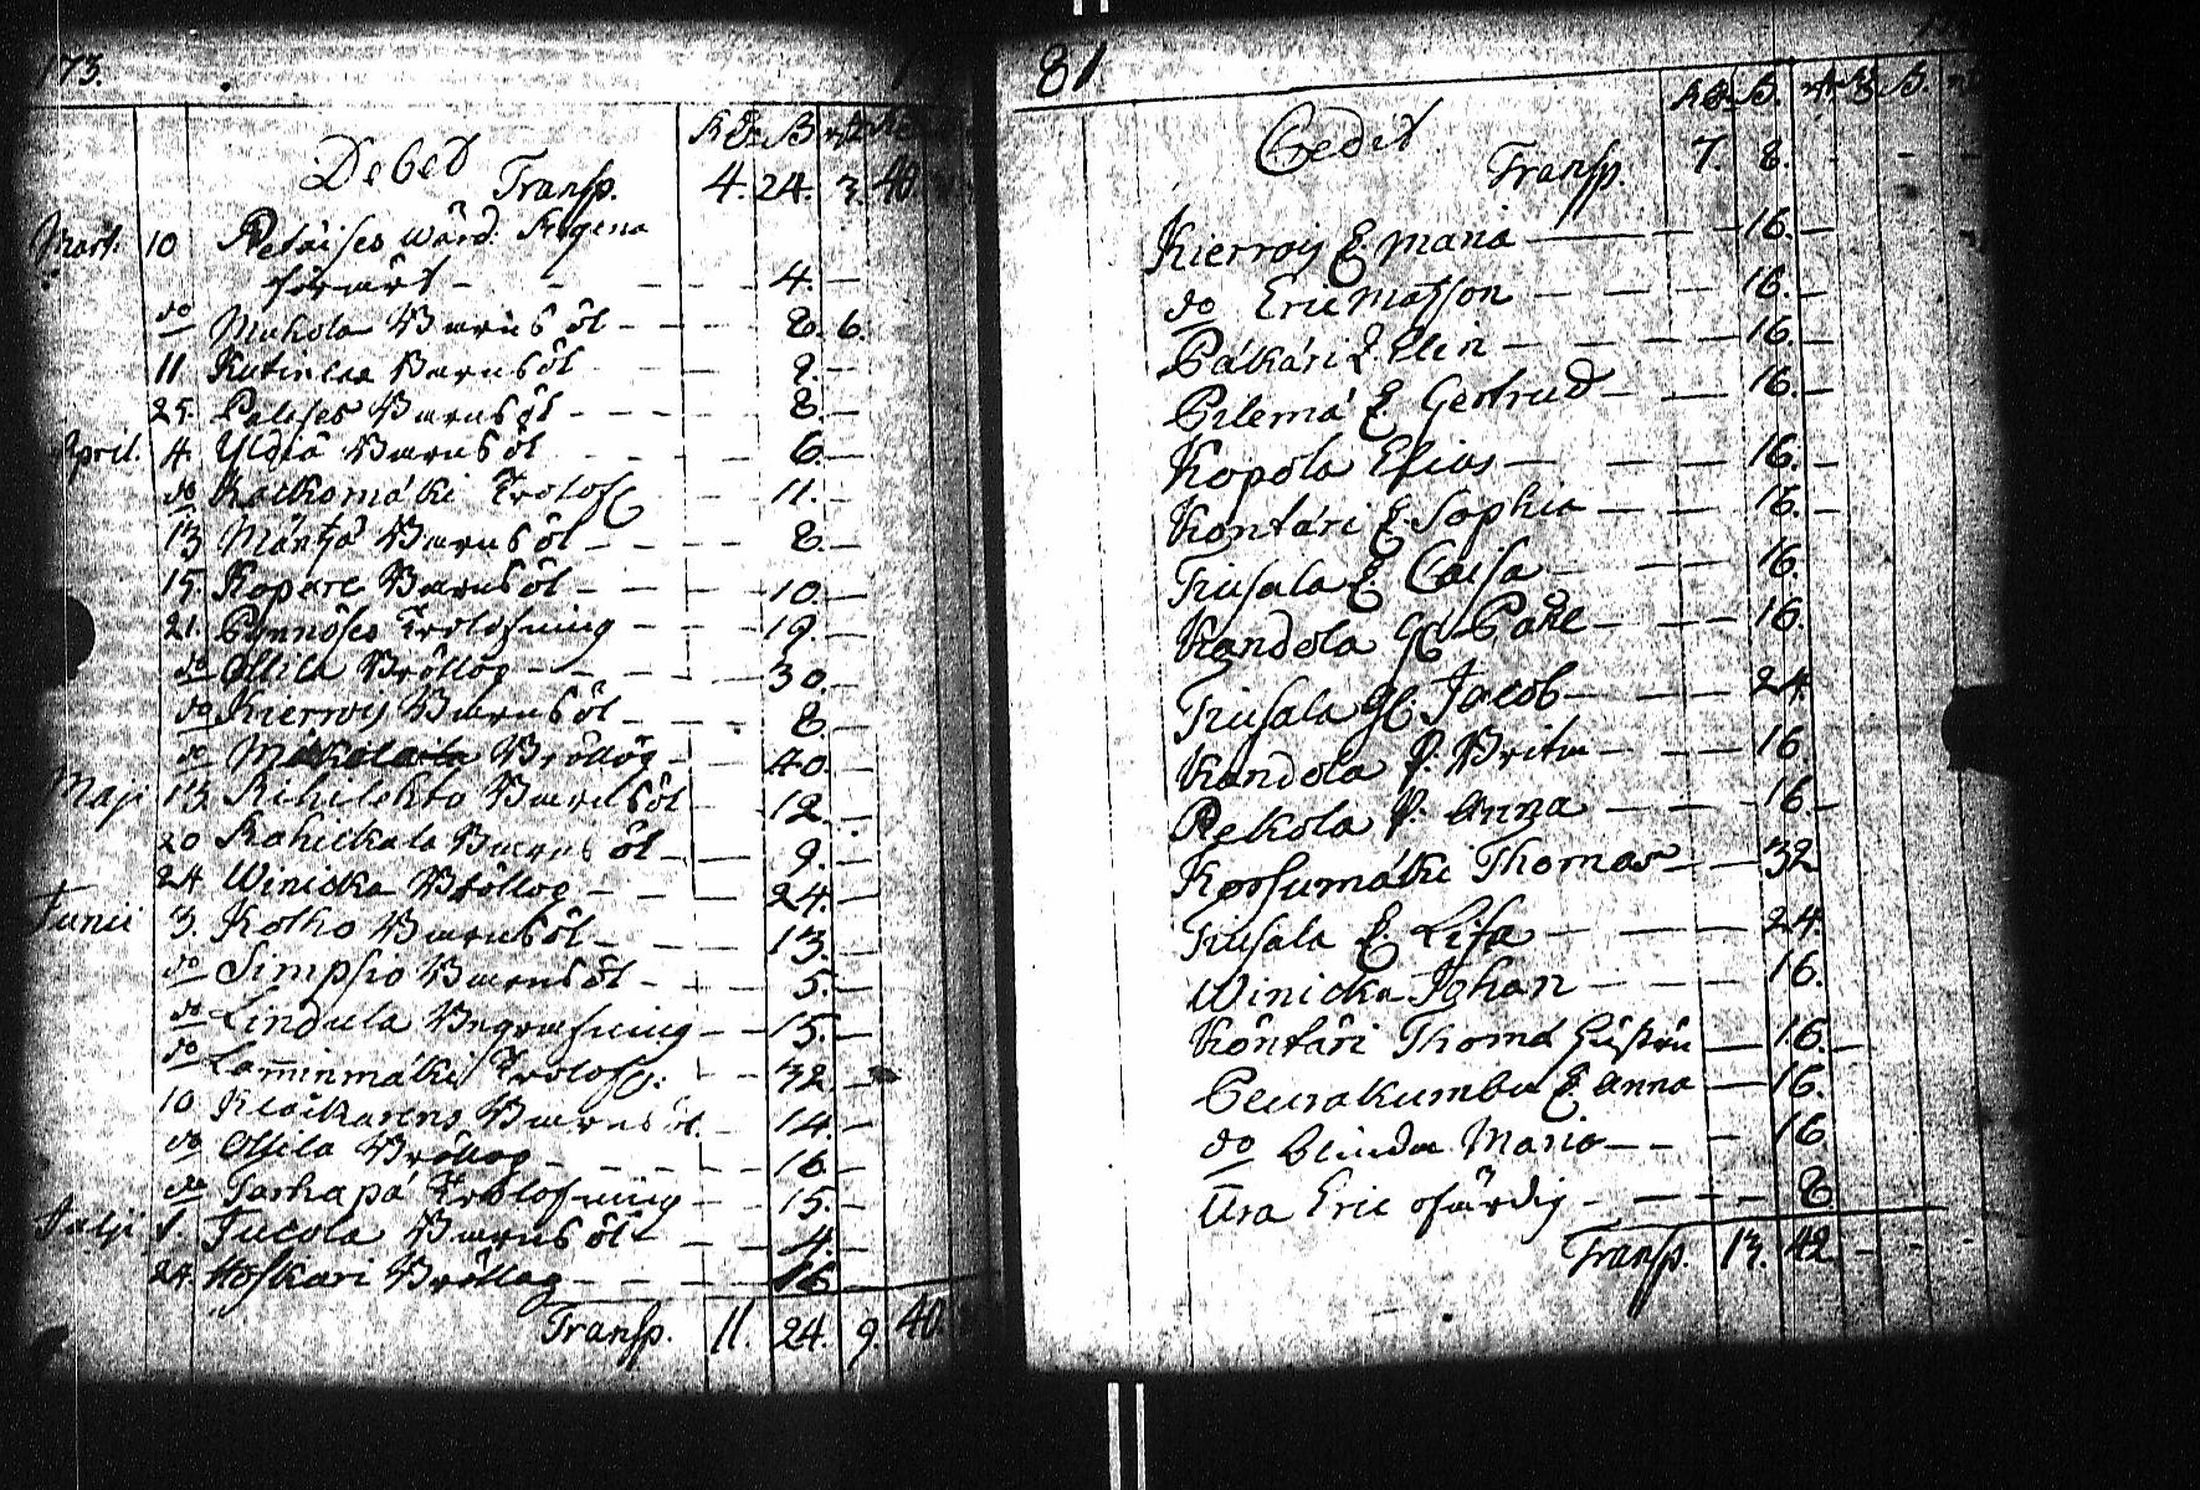 173.
Debet
Rdr ß
Transp. 4. 24. 3. 40.
Mart. 10 Petäises wärd. Regena
förärt - - - 4. -
do Mukola Barns öl - - - 8. 6.
11 Barnsöl - - 9. -
25. Barnsöl - - - 8. -
April. 4. Yldiä Barns öl - - - 6. -
do Trolofg - - 11. -
13 Mäntjä Barns öl - - - 8. -
15. Kopare Barnsöl - - - 10. -
21. Pynnöses Trolofning - - - 19. -
do Ollila Bröllog - - - 30. -
do Kierroij Barns öl - - - 8 -
do Bröllög - - 40. -
Maji 13. Rihilehto Barnsöl - - 12. -
20 Kohickala Barns öl - - 9. -
24 Winicka Bröllog - - - 24. -
Junii 3. Kotho Barnsöl - - - 13. -
do Simpsio Barnsöl - - - 5. -
do Lindula Begrafning - - 15. -
do Lam̅inmäki Trolofg: - - 32 -
10 Barns öl. - 14. -
do Ollila Bröllog - - - - 16 -
do Tarhapä Trolofning - - 15. -
Julji 1. Jucola Barns öl - - - 4. -
24. Koskari Bröllog - - - 16
Transp. 11. 24. 9. 40.
81.
Credit
ß.
Transp. 7. 8. - - -
Kierroij E. Maria - - - 16. -
do Eric Matsson - - - 16. -
Pälkäri E. Elin - - - - 16. -
Pilemä E. Gertrud - - - 16. -
Kopola Elias - - - 16. -
Kontäri E. Sophia - - - 16. -
Triusala E. Caisa - - - 16.
Kandola Gl. Påhl - - - 16.
Triusala Gl. Jacob - - - 24.
Kandola P. Brita - - - 16.
Pekola P. Anna - - - 16. -
Korsumäki Thomas - - 32
Triusala E. Lisa - - - 24.
Winicka Johan - - - - 16.
Köntäri Thomas Hustru - 16. -
Peurakumbu E. Anna - 16.
do Blinda Maria - - - 16.
Ura Eric ofärdig - - - - 8
Transp. 13. 42 - - -